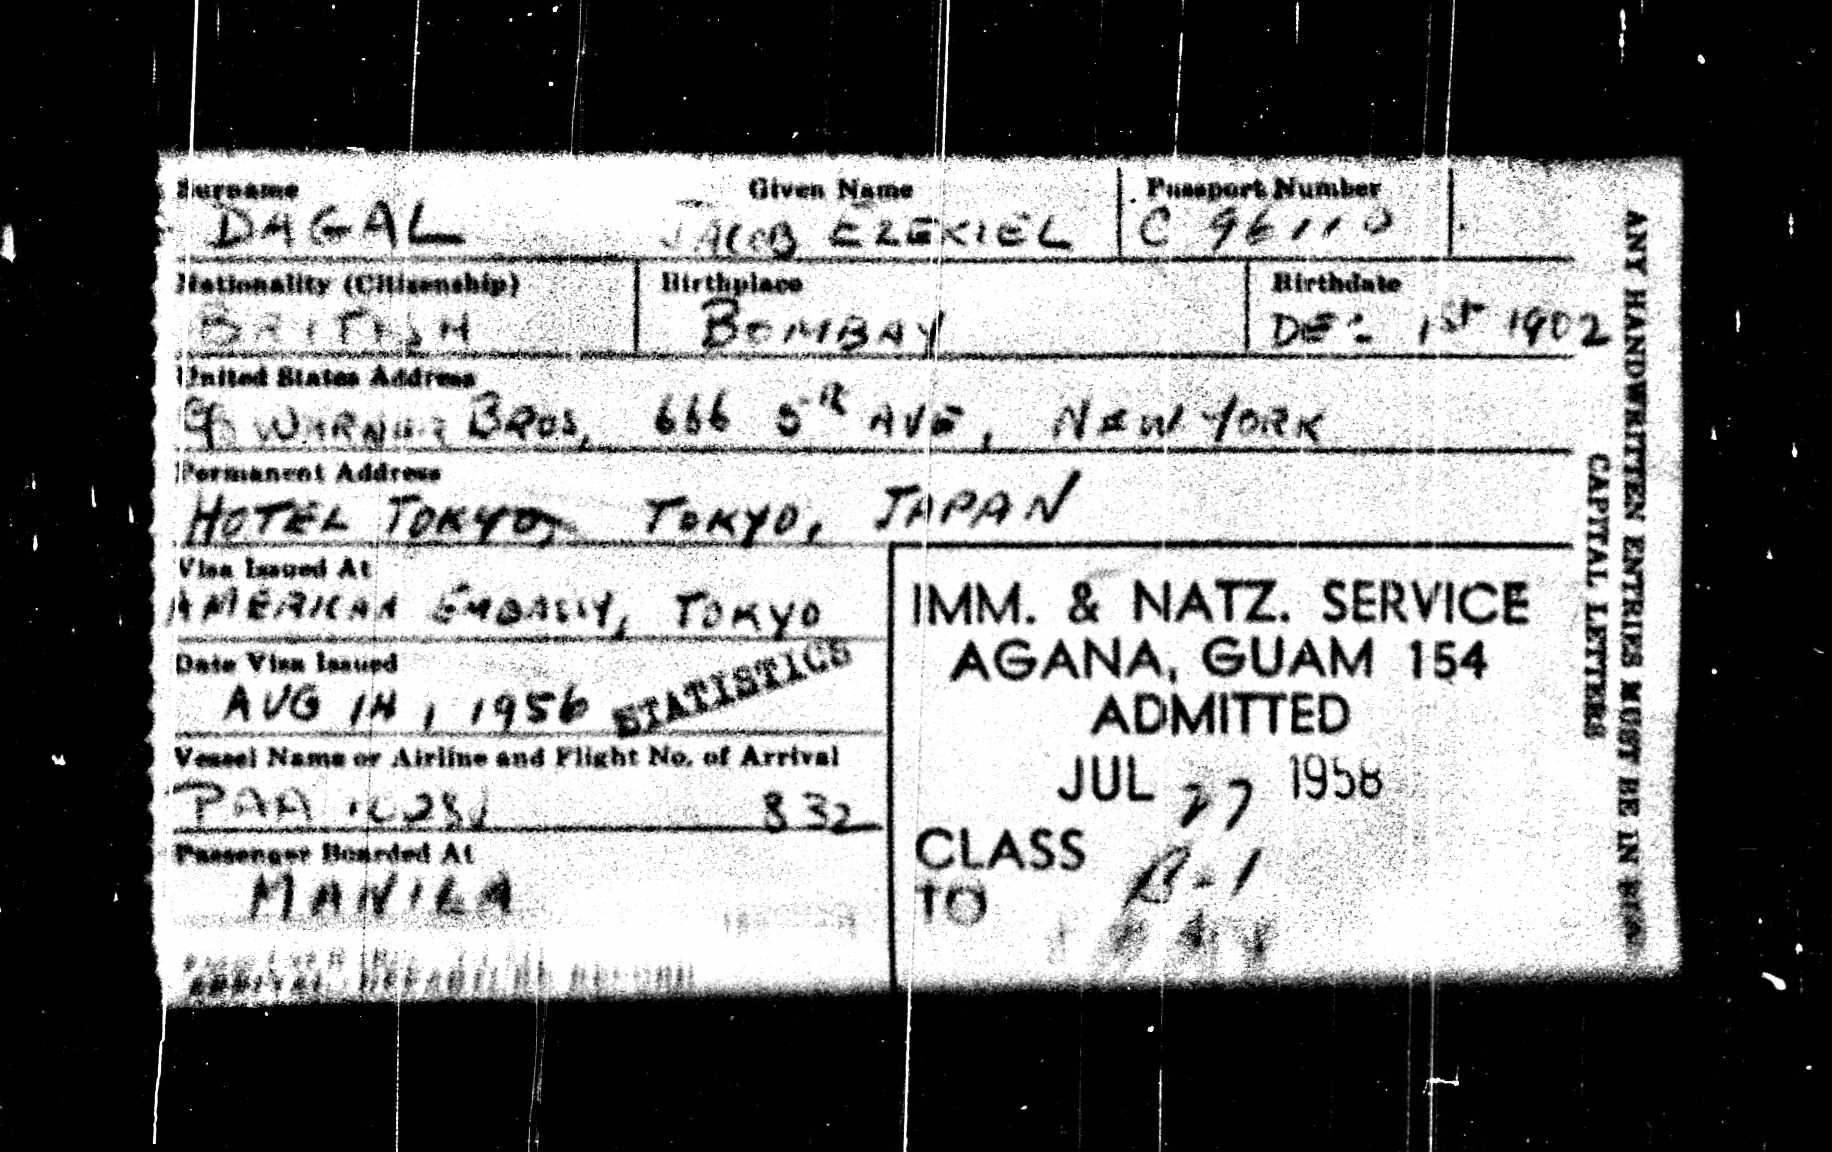 Surname Given Name Passport Number
DAGAL JACOB EZEKIEL C 96110
Nationality (Citizenship) Birthplace Birthdate
BRITISH BOMBAY DEC 1st 1902
United States Address
C/o WARNER BROS, 666 5th AVE, NEW YORK
Permanent Address
HOTEL TOKYO, TOKYO, JAPAN
Visa Issued At
AMERICAN EMBASSY, TOKYO
Date Visa Issued
AUG 14, 1956
STATISTICS
Vessel Name or Airline and Flight No. of Arrival
PAA 832
Passenger Boarded At
MANILA
IMM. & NATZ. SERVICE
AGANA, GUAM 154
ADMITTED
JUL 27 1958
CLASS B-1
TO
ARRIVAL-DEPARTURE RECORD
ANY HANDWRITTEN ENTRIES MUST BE IN
CAPITAL LETTERS